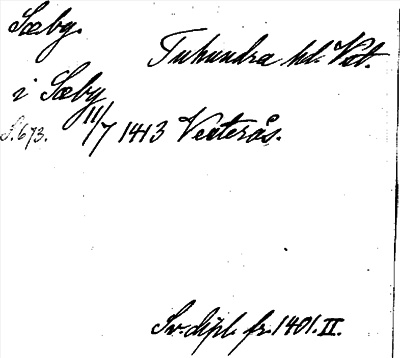 Sæby.
Tuhundra hd. Vst.
i Sæby
S. 673. 11/7 1413 Vesterås.
Sv. dipl. fr. 1401. II.